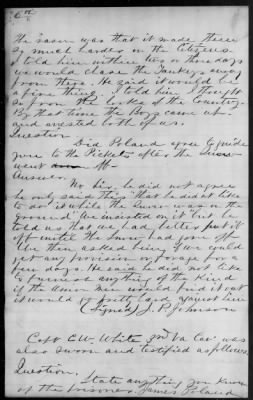 6th
The reason was that it made these
so much harder on the Citizens.
I told him within two or three days
we would chase the Yankeys away
from there. He said it would be
a fine thing. I told him I thought
so from the looks of the Country.
By that time the Boys came up
and arrested both of us.
Question
Did Poland agree to guide
you to the Pickets after the snow
went off.
Answer.
No Sir, he did not agree
he only said this "that he did not like
to do it while the snow was on the
ground" he insisted on it but he
told us that we had better put it
off until the snow had gone off.
We then asked him if we could
get any provision or forage for a
few days. He said he did not like
to furnish anything of the Kind
if the Union men should find it out
it would go pretty hard against him
(signed) J. P. Johnson
Capt E.W. White Va Cav was
also sworn and testified as follows
Question.
State anything you know
of the prisoner James Poland